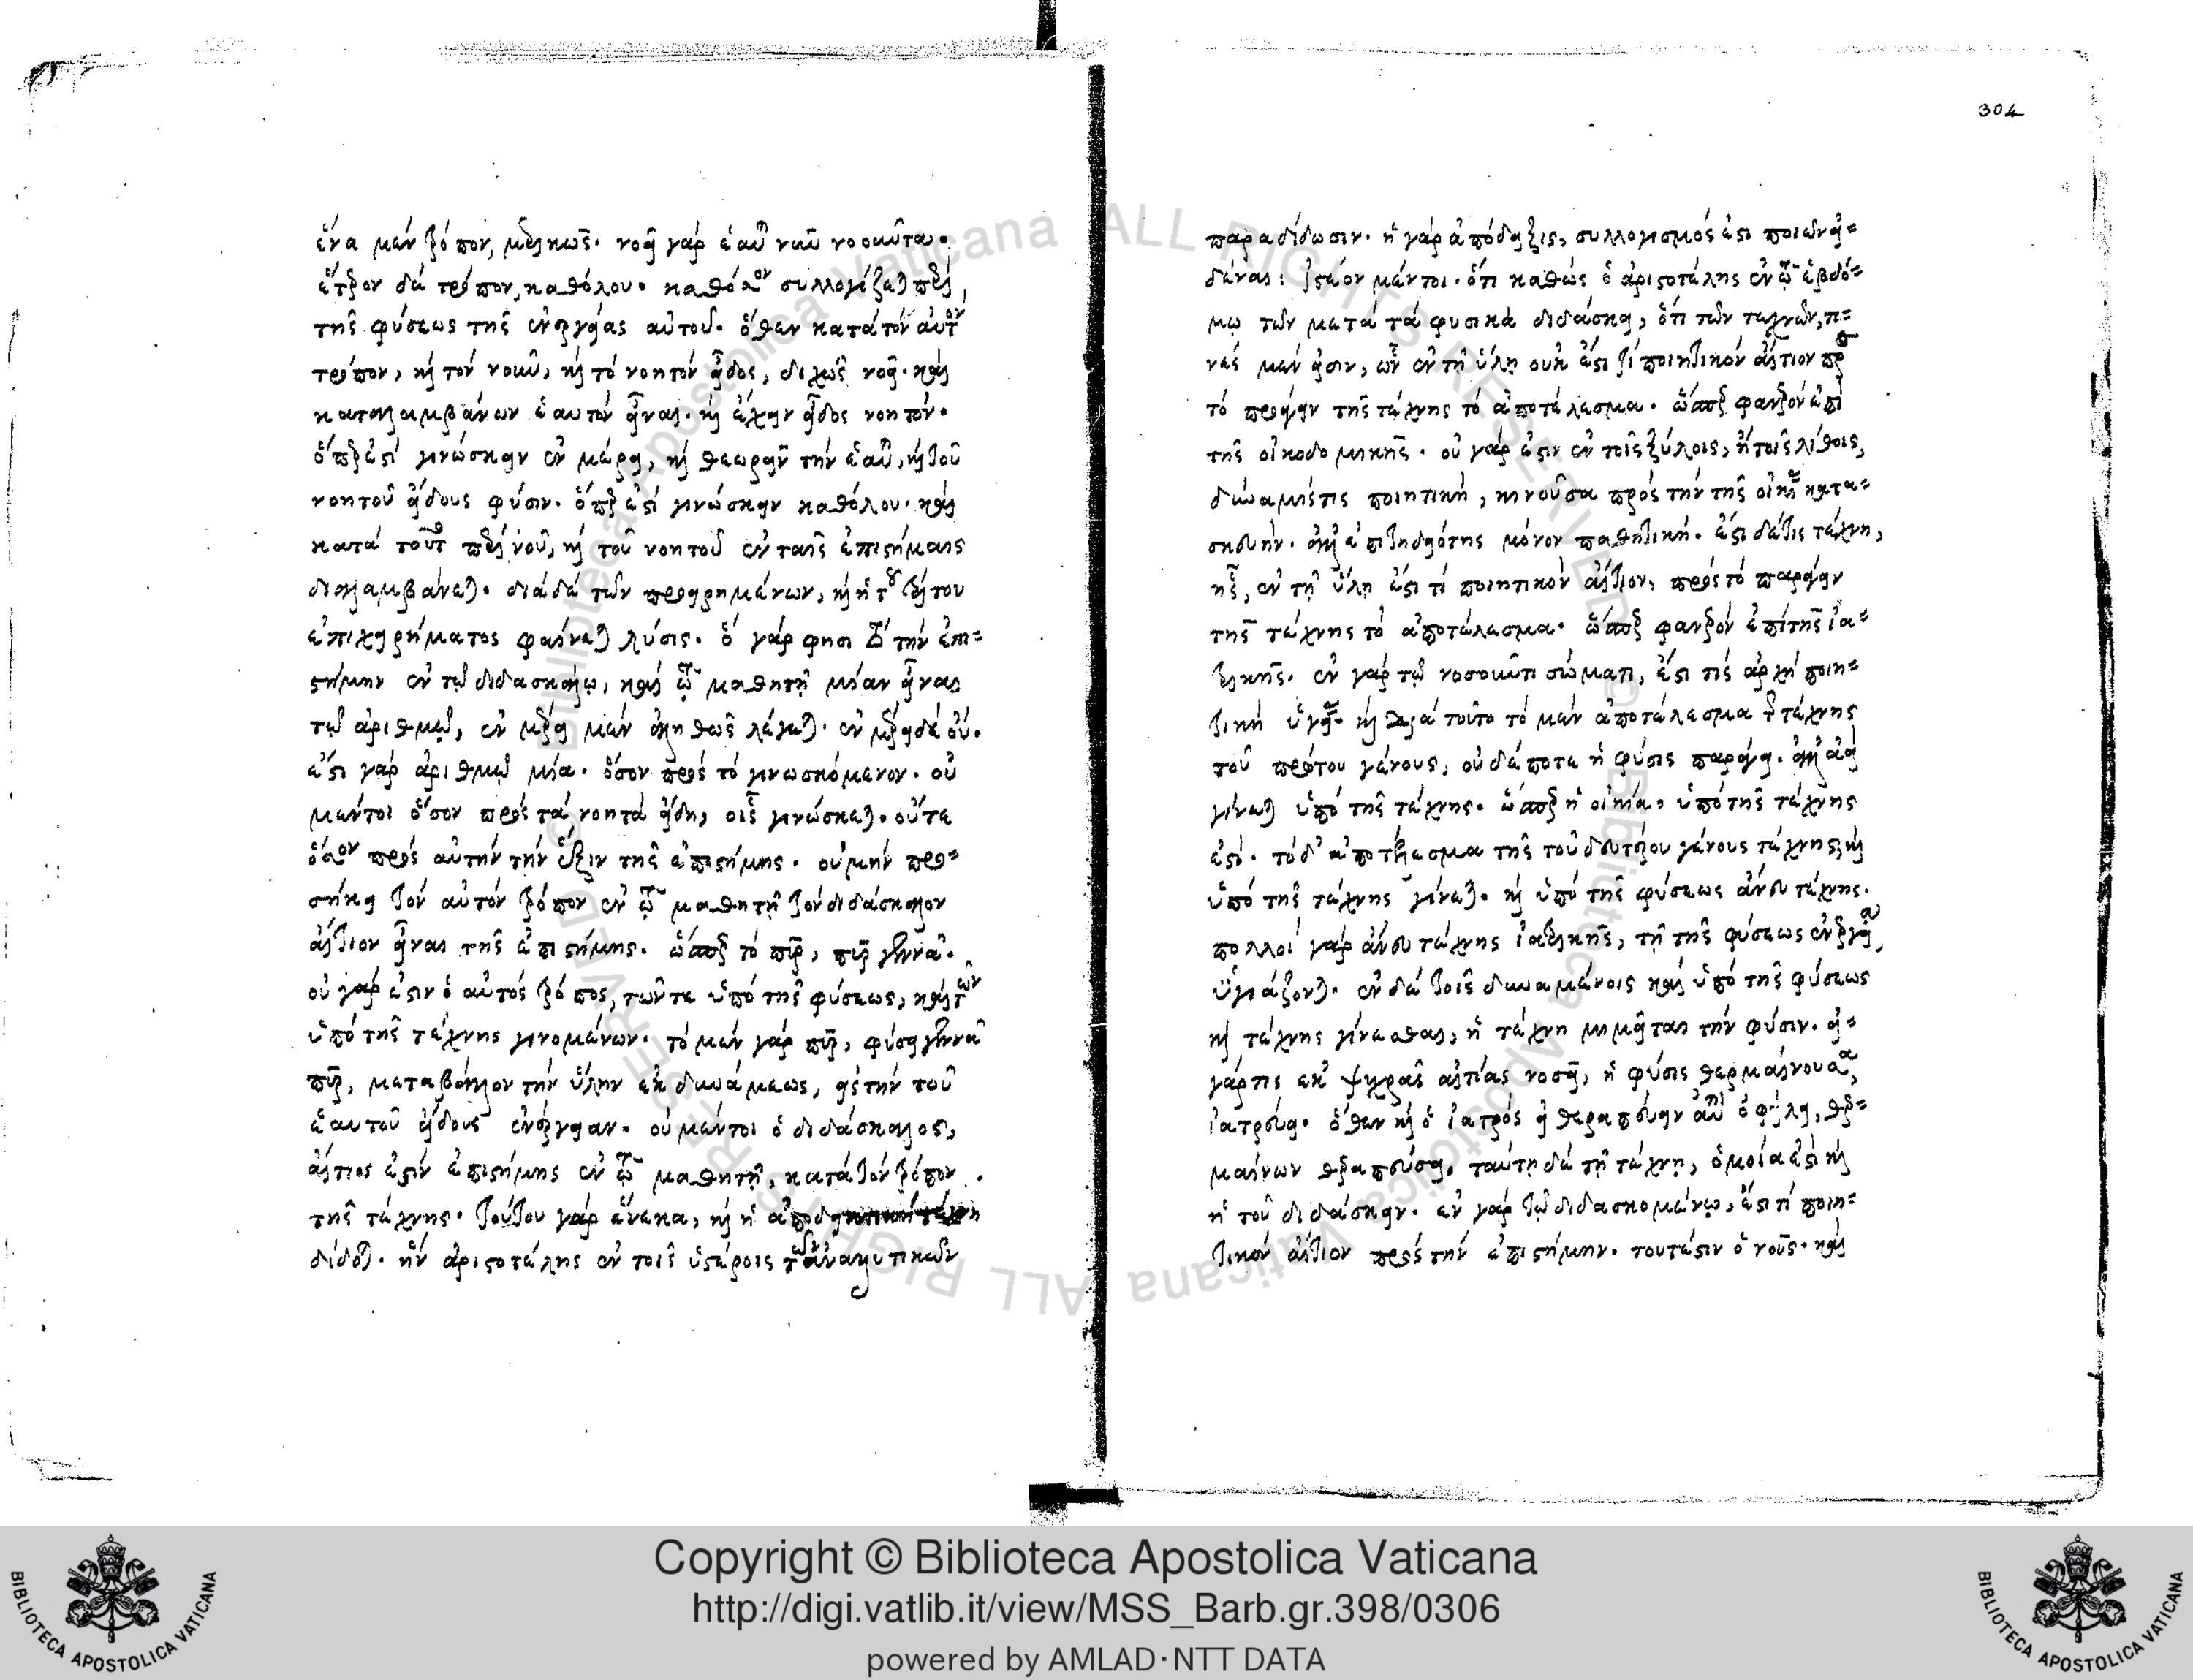 ἕνα μὲν τρόπον, μερικῶς. νοεῖ γὰρ ἑαυτὸν νῦν νοοῦντα.
ἕτερον δὲ τρόπον, καθόλου. καθόσον συλλογίζεται περὶ
τῆς φύσεως τῆς ἐνεργείας αὐτοῦ. ὅθεν κατὰ τὸν αὐτὸν
τρόπον, καὶ τὸν νοῦν, καὶ τὸ νοητὸν εἶδος, διχῶς νοεῖ. καὶ
καταλαμβάνων ἑαυτὸν εἶναι. καὶ ἔχειν εἶδος νοητόν.
ὅπερ ἐστὶ γινώσκειν ἐν μέρει, καὶ θεωρεῖν τὴν ἑαυτοῦ, καὶ τοῦ
νοητοῦ εἴδους φύσιν. ὅπερ ἐστὶ γινώσκειν καθόλου. καὶ
κατὰ τοῦτο περὶ νοῦ, καὶ τοῦ νοητοῦ ἐν ταῖς ἐπιστήμαις
διαλαμβάνεται. διὰ δὲ τῶν προειρημένων, καὶ ἡ τοῦ τρίτου
ἐπιχειρήματος φαίνεται λύσις. ὃ γάρ φησι τὴν ἐπι=
στήμην ἐν τῷ διδασκάλῳ, καὶ τῷ μαθητῇ μίαν εἶναι
τῷ ἀριθμῷ, ἐν μέρει μὲν ἀληθῶς λέγεται. ἐν μέρει δὲ οὔ.
ἔστι γὰρ ἀριθμῷ μία. ὅσον πρὸς τὸ γινωσκόμενον. οὐ
μέντοι ὅσον πρὸς τὰ νοητὰ εἴδη, οἷς γινώσκεται. οὔτε
ὅσον πρὸς αὐτὴν τὴν ἕξιν τῆς ἐπιστήμης. οὐ μὴν προ=
σήκει τὸν αὐτὸν τρόπον ἐν τῷ μαθητῇ τὸν διδάσκαλον
αἴτιον εἶναι τῆς ἐπιστήμης. ὥσπερ τὸ πῦρ, πῦρ γεννᾷ.
οὐ γὰρ ἔστιν ὁ αὐτὸς τρόπος, τῶν τε ὑπὸ τῆς φύσεως, καὶ τῶν
ὑπὸ τῆς τέχνης γινομένων. τὸ μὲν γὰρ πῦρ, φύσει γεννᾷ
πῦρ, μεταβάλλον τὴν ὕλην ἐκ δυνάμεως, εἰς τὴν τοῦ
ἑαυτοῦ εἴδους ἐνέργειαν. οὐ μέντοι ὁ διδάσκαλος,
αἴτιος ἐστὶν ἐπιστήμης ἐν τῷ μαθητῇ, κατὰ τὸν τρόπον
τῆς τέχνης. τούτου γὰρ ἕνεκα, καὶ ἡ ἀποδεικτικὴ τέχνη
δίδοται. ἣν ἀριστοτέλης ἐν τοῖς ὑστέροις τῶν ἀναλυτικῶν
304
παραδίδωσιν. ἡ γὰρ ἀπόδειξις, συλλογισμός ἐστι ποιῶν εἰ=
δέναι: ἰστέον μέντοι. ὅτι καθὼς ὁ ἀριστοτέλης ἐν τῷ ἑβδό=
μῳ τῶν μετὰ τὰ φυσικὰ διδάσκει, ὅτι τῶν τεχνῶν, τι=
νὲς μέν εἰσιν, ὧν ἐν τῇ ὕλῃ οὐκ ἔστι τί ποιητικὸν αἴτιον πρὸς
τὸ προάγειν τῆς τέχνης τὸ ἀποτέλεσμα. ὥσπερ φανερὸν ἐπὶ
τῆς οἰκοδομικῆς. οὐ γάρ ἐστιν ἐν τοῖς ξύλοις, ἢ τοῖς λίθοις,
δύναμίς τις ποιητικὴ, κινοῦσα πρὸς τὴν τῆς οἰκίας κατα=
σκευήν. ἀλλ' ἐπιτηδειότης μόνον παθητική. ἔστι δέ τις τέχνη,
ἧς, ἐν τῇ ὕλῃ ἐστί τι ποιητικὸν αἴτιον, πρὸς τὸ παράγειν
τῆς τέχνης τὸ ἀποτέλεσμα. ὥσπερ φανερὸν ἐπὶ τῆς ἰα=
τρικῆς. ἐν γὰρ τῷ νοσοῦντι σώματι, ἔστι τίς ἀρχὴ ποιη=
τικὴ ὑγείας. καὶ διὰ τοῦτο τὸ μὲν ἀποτέλεσμα τῆς τέχνης
τοῦ πρώτου γένους, οὐδέποτε ἡ φύσις παράγει. ἀλλ' ἀεὶ
γίνεται ὑπὸ τῆς τέχνης. ὥσπερ ἡ οἰκία, ὑπὸ τῆς τέχνης
ἐστί. τὸ δ' ἀποτέλεσμα τῆς τοῦ δευτέρου γένους τέχνης, καὶ
ὑπὸ τῆς τέχνης γίνεται. καὶ ὑπὸ τῆς φύσεως ἄνευ τέχνης.
πολλοὶ γὰρ ἄνευ τέχνης ἰατρικῆς, τῇ τῆς φύσεως ἐνεργείᾳ,
ὑγιάζονται. ἐν δὲ τοῖς δυναμένοις καὶ ὑπὸ τῆς φύσεως
καὶ τέχνης γίνεσθαι, ἡ τέχνη μιμεῖται τὴν φύσιν. εἰ=
γάρ τις ἐκ ψυχρᾶς αἰτίας νοσεῖ, ἡ φύσις θερμαίνουσα,
ἰατρεύει. ὅθεν καὶ ὁ ἰατρὸς εἰ θεραπεύειν αὐτὸν ὀφείλει, θερ=
μαίνων θεραπεύσει. ταύτῃ δὲ τῇ τέχνῃ, ὁμοία ἐστὶ καὶ
ἡ τοῦ διδάσκειν. ἐν γὰρ τῷ διδασκομένῳ, ἔστι τί ποιη=
τικὸν αἴτιον πρὸς τὴν ἐπιστήμην. τουτέστιν ὁ νοῦς. καὶ
Copyright © Biblioteca Apostolica Vaticana
http://digi.vatlib.it/view/MSS_Barb.gr.398/0306
powered by AMLAD·NTT DATA
BIBLIOTECA APOSTOLICA VATICANA
BIBLIOTECA APOSTOLICA VATICANA